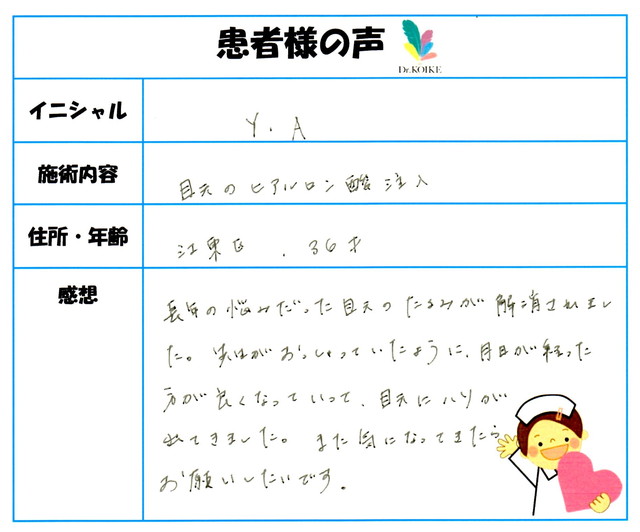 患者様の声
Dr.KOIKE
イニシャル
Y. A
施術内容
目元のヒアルロン酸注入
住所・年齢
江東区 . 36才
感想
長年の悩みだった目元のたるみが解消されまし
た。先生がおっしゃっていたように、月日が経った
方が良くなっていって、目元にハリが
出てきました。また気になってきたら
お願いしたいです。